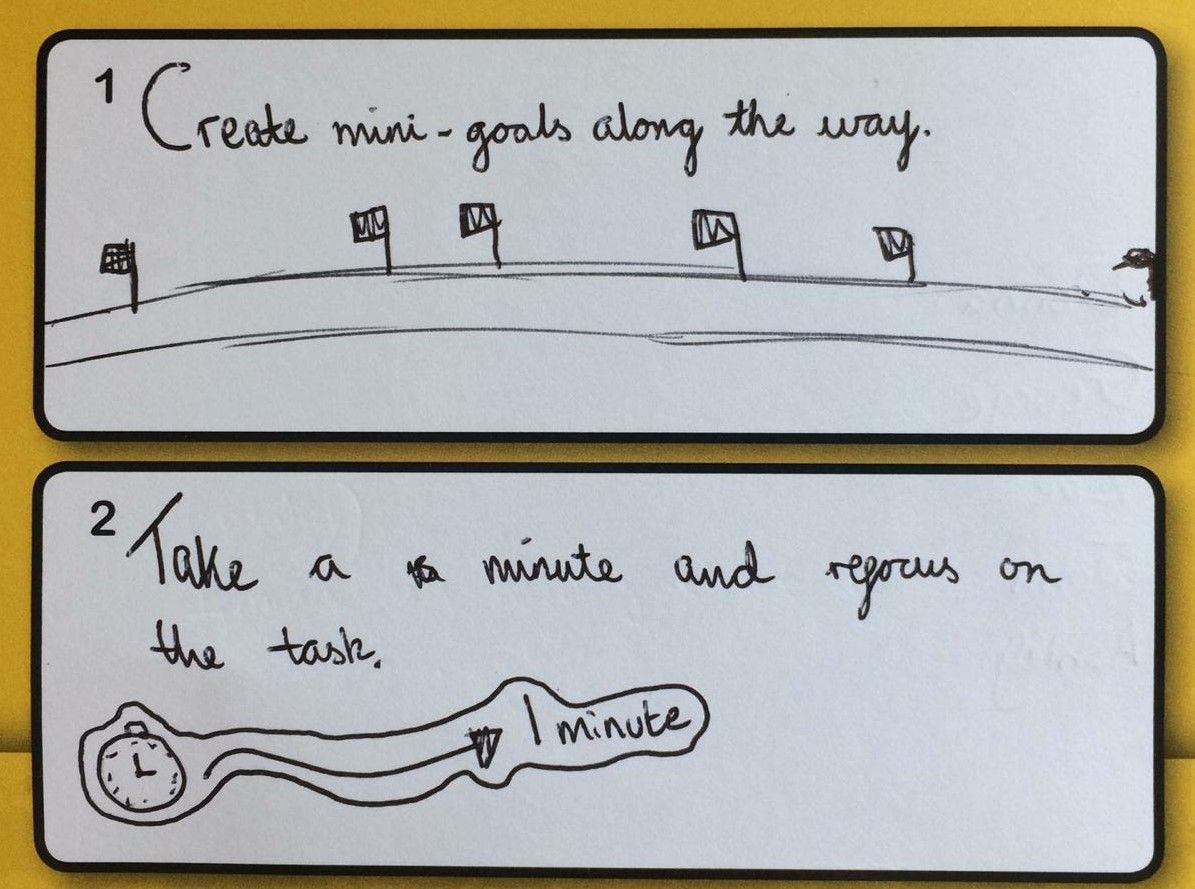 1 Create mini-goals along the way.
2 Take a minute and refocus on
the task.
1 minute